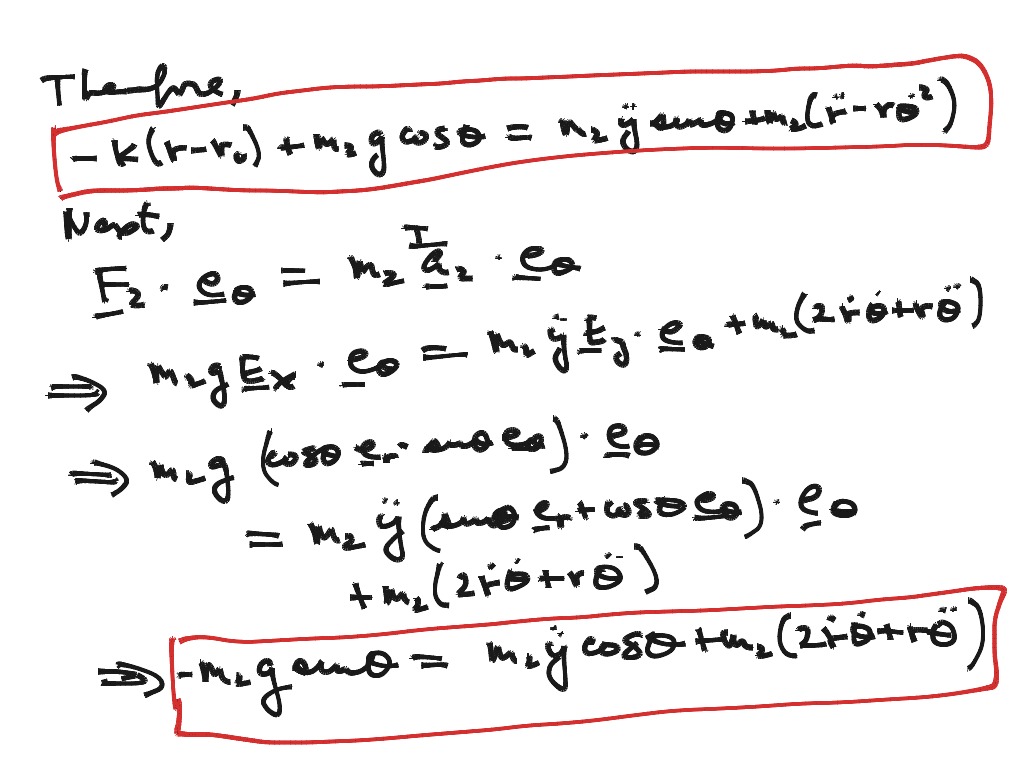 Therefore,
− K(r−r₀) + m₂ g cosθ = m₂ ÿ sinθ + m₂(r̈ − rθ̇²)
Next,
F̲₂ · e̲_θ = m₂ ᴵa̲₂ · e̲_θ
⇒ m₂ g E̲ₓ · e̲_θ = m₂ ÿ E̲_y · e̲_θ + m₂(2ṙθ̇ + rθ̈)
⇒ m₂ g (cosθ e̲_r − sinθ e̲_θ) · e̲_θ
= m₂ ÿ (sinθ e̲_r + cosθ e̲_θ) · e̲_θ
+ m₂(2ṙθ̇ + rθ̈)
⇒ −m₂ g sinθ = m₂ ÿ cosθ + m₂(2ṙθ̇ + rθ̈)